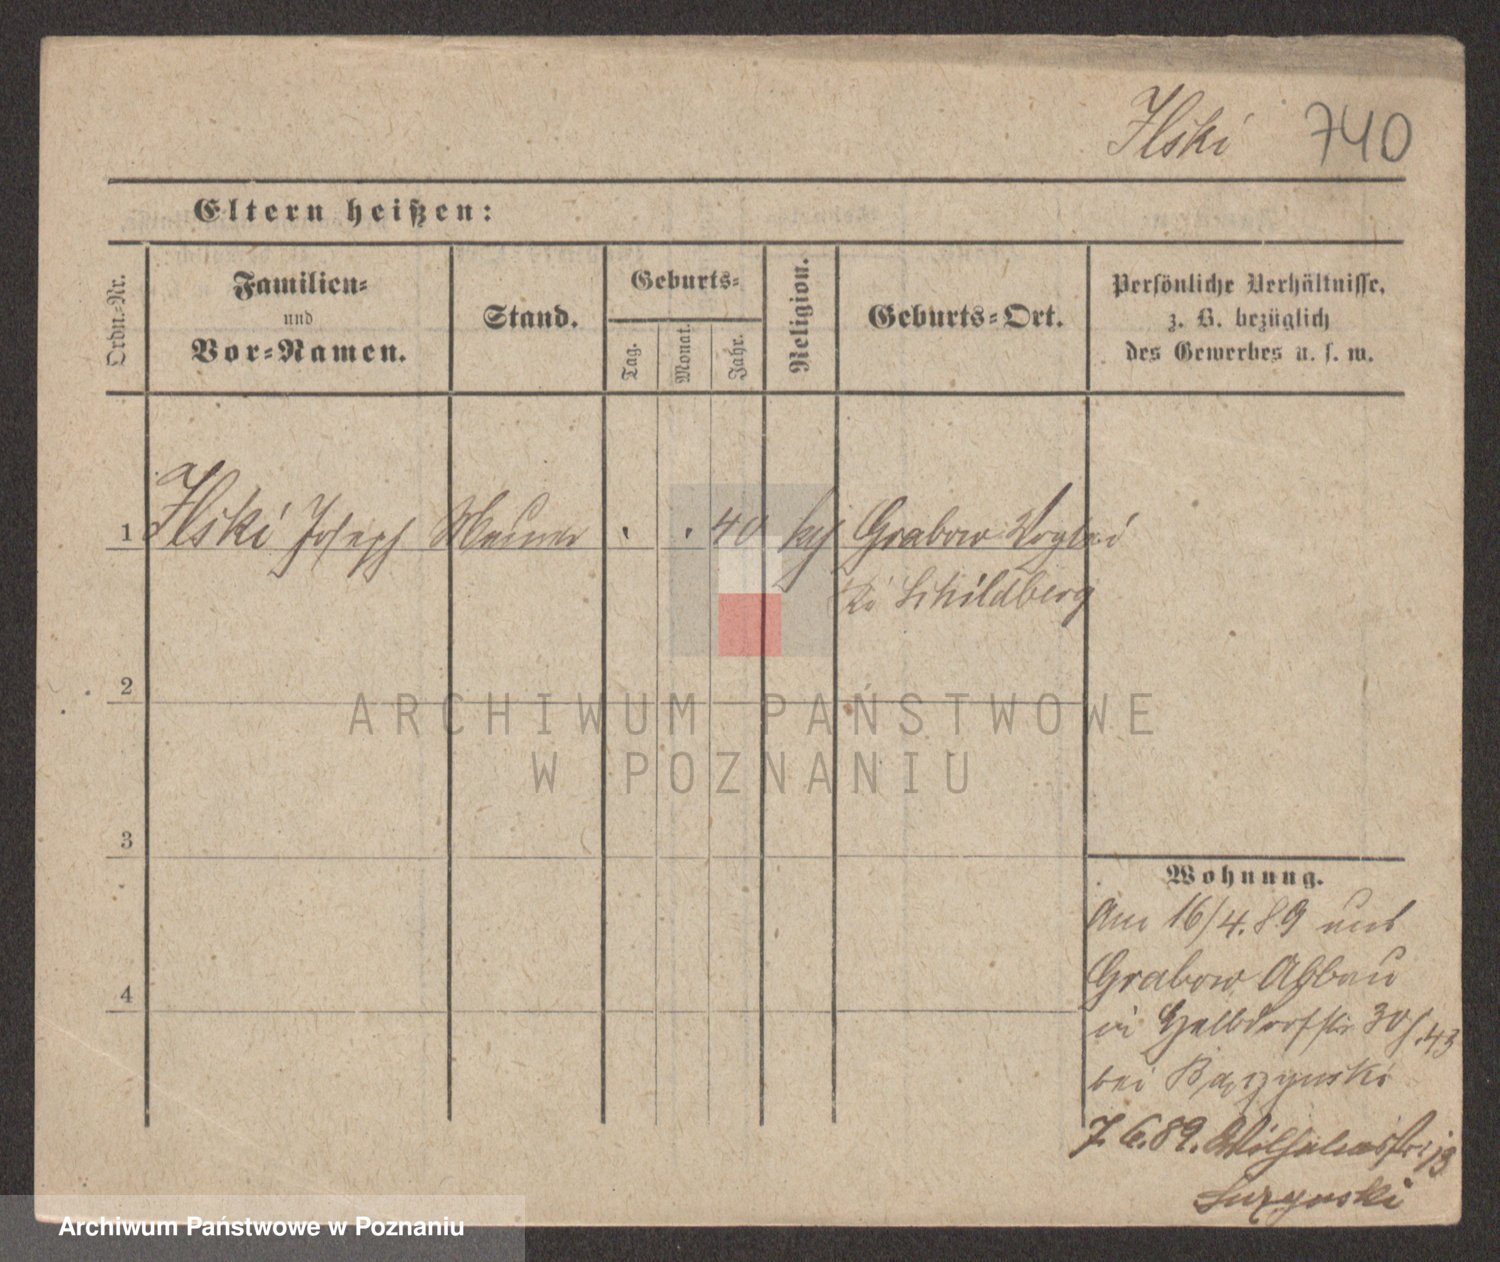 Ilski 740
Eltern heißen:
Ordn.-Nr.
Familien-
und
Vor-Namen.
Stand.
Geburts-
Tag.
Monat.
Jahr.
Religion.
Geburts-Ort.
Persönliche Verhältnisse,
z. B. bezüglich
des Gewerbes u. s. w.
1 Ilski Joseph Maurer 40 Grabow
Schildberg
2
3
4
Wohnung.
Am 16/4.89 aus
Grabow Abbau
in Halbdorfstr 30
bei
7.6.89.
ARCHIWUM PAŃSTWOWE
W POZNANIU
Archiwum Państwowe w Poznaniu